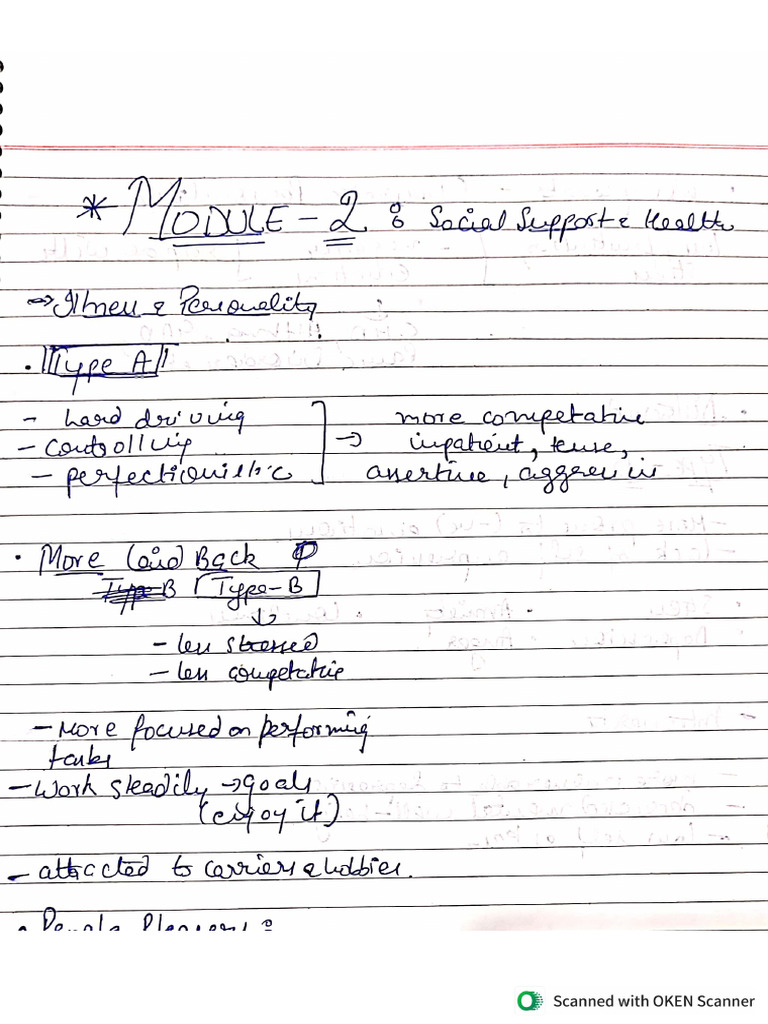 * MODULE - 2 : Social Support & Health
⇒ Illness & Personality
• Type A
- hard driving
- controlling
- perfectionistic
→ more competative
inpatient, tense,
assertive, aggressive
• More laid Back
Type B Type-B
↓
- less stressed
- less competative
- More focused on performing
tasks
- Work steadily → goals
(enjoy it)
- attracted to carriers & hobbies.
• People Pleasers :
Scanned with OKEN Scanner